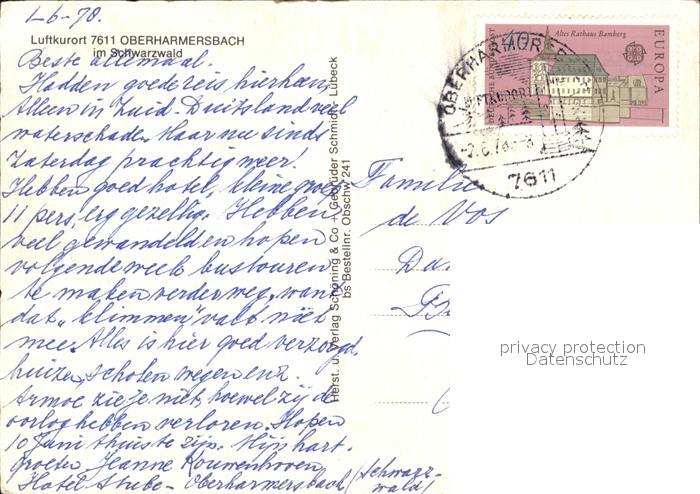 1-6-78.
Luftkurort 7611 OBERHARMERSBACH
im Schwarzwald
Beste allemaal.
Hadden goede reis hierheen
Alleen in Zuid-Duitsland veel
waterschade. Maar nu sinds
Zaterdag prachtig weer.
Hebben goed hotel, kleine groep
11 pers, erg gezellig. Hebben
veel gewandeld en hopen
volgende week bustouren
te maken verder weg, want
dat "klimmen" valt niet
mee. Alles is hier goed verzorgd,
huizen, scholen wegen enz.
Armoe zie je niet, hoewel zij de
oorlog hebben verloren. Hopen
10 Juni thuis te zijn. Mijn hart.
groeten Jeanne Kouwenhoven
Hotel Stube - Oberharmersbach (Schwarz-
wald)
Herst. u. Verlag Schöning & Co + Gebrüder Schmidt, Lübeck
bs Bestellnr. Obschw 241
Altes Rathaus Bamberg
EUROPA
40
DEUTSCHE BUNDESPOST
OBERHARMER
LUFTKURORT
-2.6.78-8
7611
Familie
de Vos
privacy protection
Datenschutz